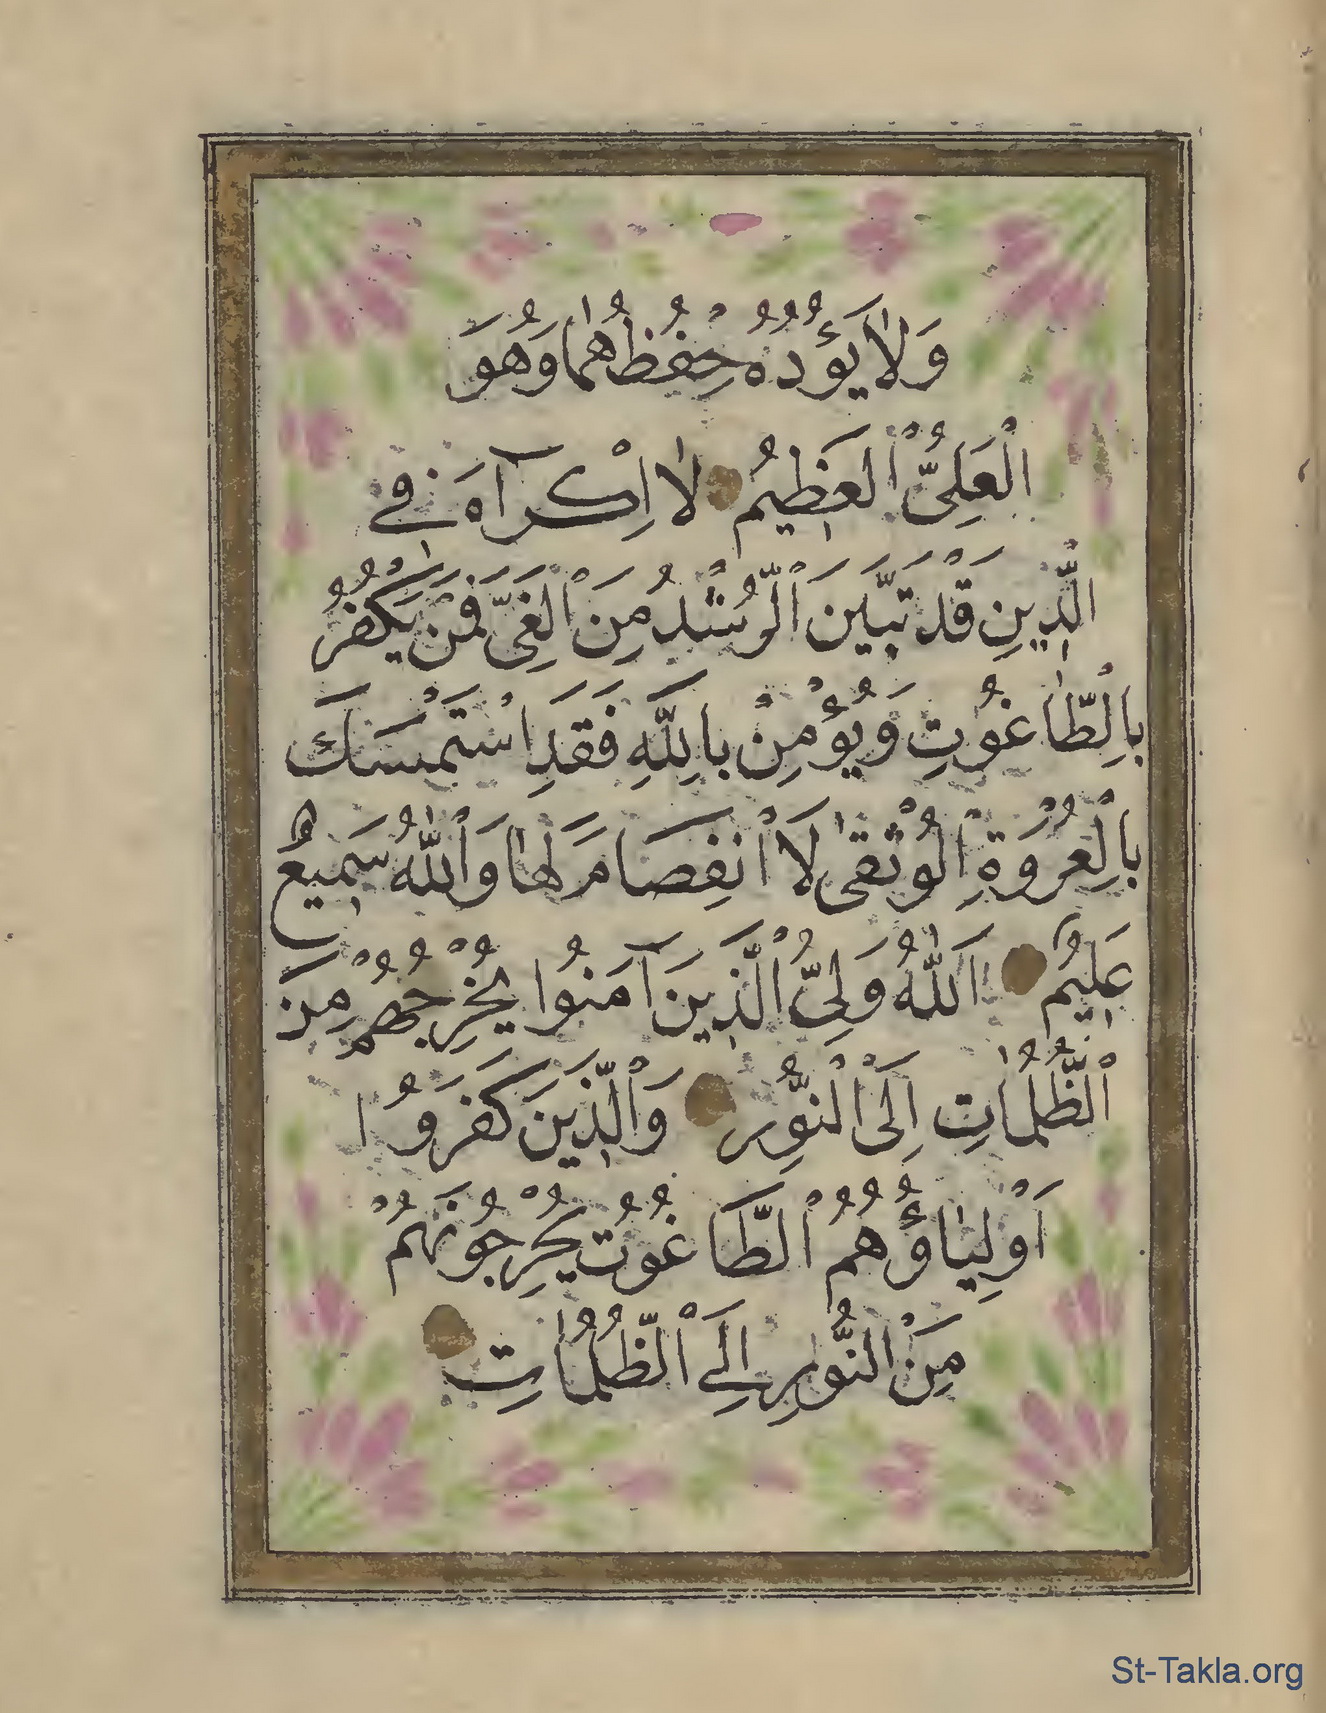 وَلَا يَؤُدُهُ حِفْظُهُمَا وَهُوَ
الْعَلِىُّ الْعَظِيمُ لَا اِكْرَآهَ فِى
الدِّينِ قَدْ تَبَيَّنَ الرُّشْدُ مِنَ الْغَىِّ فَمَنْ يَكْفُرْ
بِالطَّاغُوتِ وَيُؤْمِنْ بِاللَّهِ فَقَدِ اسْتَمْسَكَ
بِالْعُرْوَةِ الْوُثْقٰى لَا انْفِصَامَ لَهَا وَاللَّهُ سَمِيعٌ
عَلِيمٌ اَللَّهُ وَلِىُّ الَّذِينَ آمَنُوا يُخْرِجُهُمْ مِنَ
الظُّلُمَاتِ اِلَى النُّورِ وَالَّذِينَ كَفَرُوا
اَوْلِيَاؤُهُمُ الطَّاغُوتُ يُخْرِجُونَهُمْ
مِنَ النُّورِ اِلَى الظُّلُمَاتِ
St-Takla.org